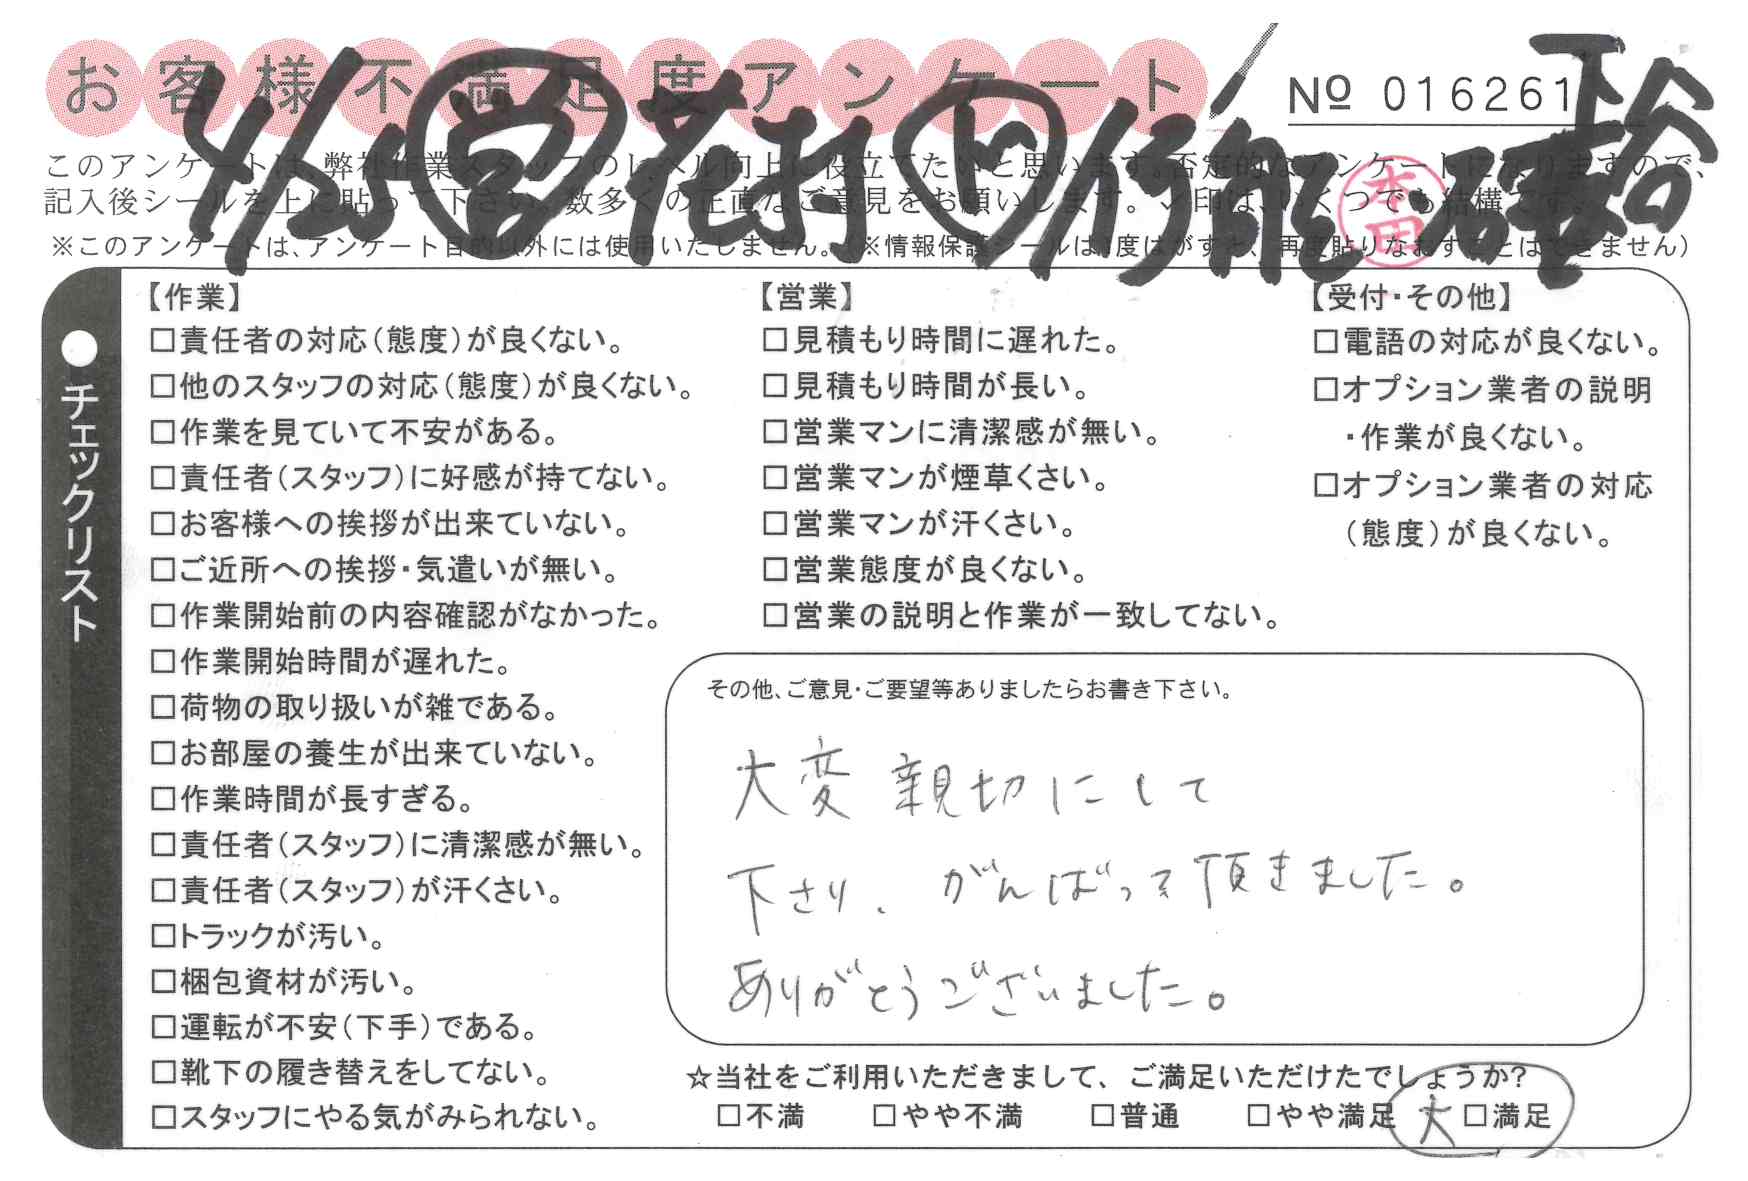 お客様不満足度アンケート
№ 016261
4/25 営 花村 ト 行能
下谷
本田
このアンケートは、弊社作業スタッフのレベル向上に役立てたいと思います。否定的なアンケートになりますので、
記入後シールを上に貼って下さい。数多くの正直なご意見をお願いします。✓印は、いくつでも結構です。
※このアンケートは、アンケート目的以外には使用いたしません。(※情報保護シールは1度はがすと、再度貼りなおすことはできません)
●チェックリスト
【作業】
□責任者の対応(態度)が良くない。
□他のスタッフの対応(態度)が良くない。
□作業を見ていて不安がある。
□責任者(スタッフ)に好感が持てない。
□お客様への挨拶が出来ていない。
□ご近所への挨拶・気遣いが無い。
□作業開始前の内容確認がなかった。
□作業開始時間が遅れた。
□荷物の取り扱いが雑である。
□お部屋の養生が出来ていない。
□作業時間が長すぎる。
□責任者(スタッフ)に清潔感が無い。
□責任者(スタッフ)が汗くさい。
□トラックが汚い。
□梱包資材が汚い。
□運転が不安(下手)である。
□靴下の履き替えをしてない。
□スタッフにやる気がみられない。
【営業】
□見積もり時間に遅れた。
□見積もり時間が長い。
□営業マンに清潔感が無い。
□営業マンが煙草くさい。
□営業マンが汗くさい。
□営業態度が良くない。
□営業の説明と作業が一致してない。
【受付・その他】
□電話の対応が良くない。
□オプション業者の説明
・作業が良くない。
□オプション業者の対応
(態度)が良くない。
その他、ご意見・ご要望等ありましたらお書き下さい。
大変親切にして
下さり、がんばって頂きました。
ありがとうございました。
☆当社をご利用いただきまして、ご満足いただけたでしょうか?
□不満 □やや不満 □普通 □やや満足 大 □満足